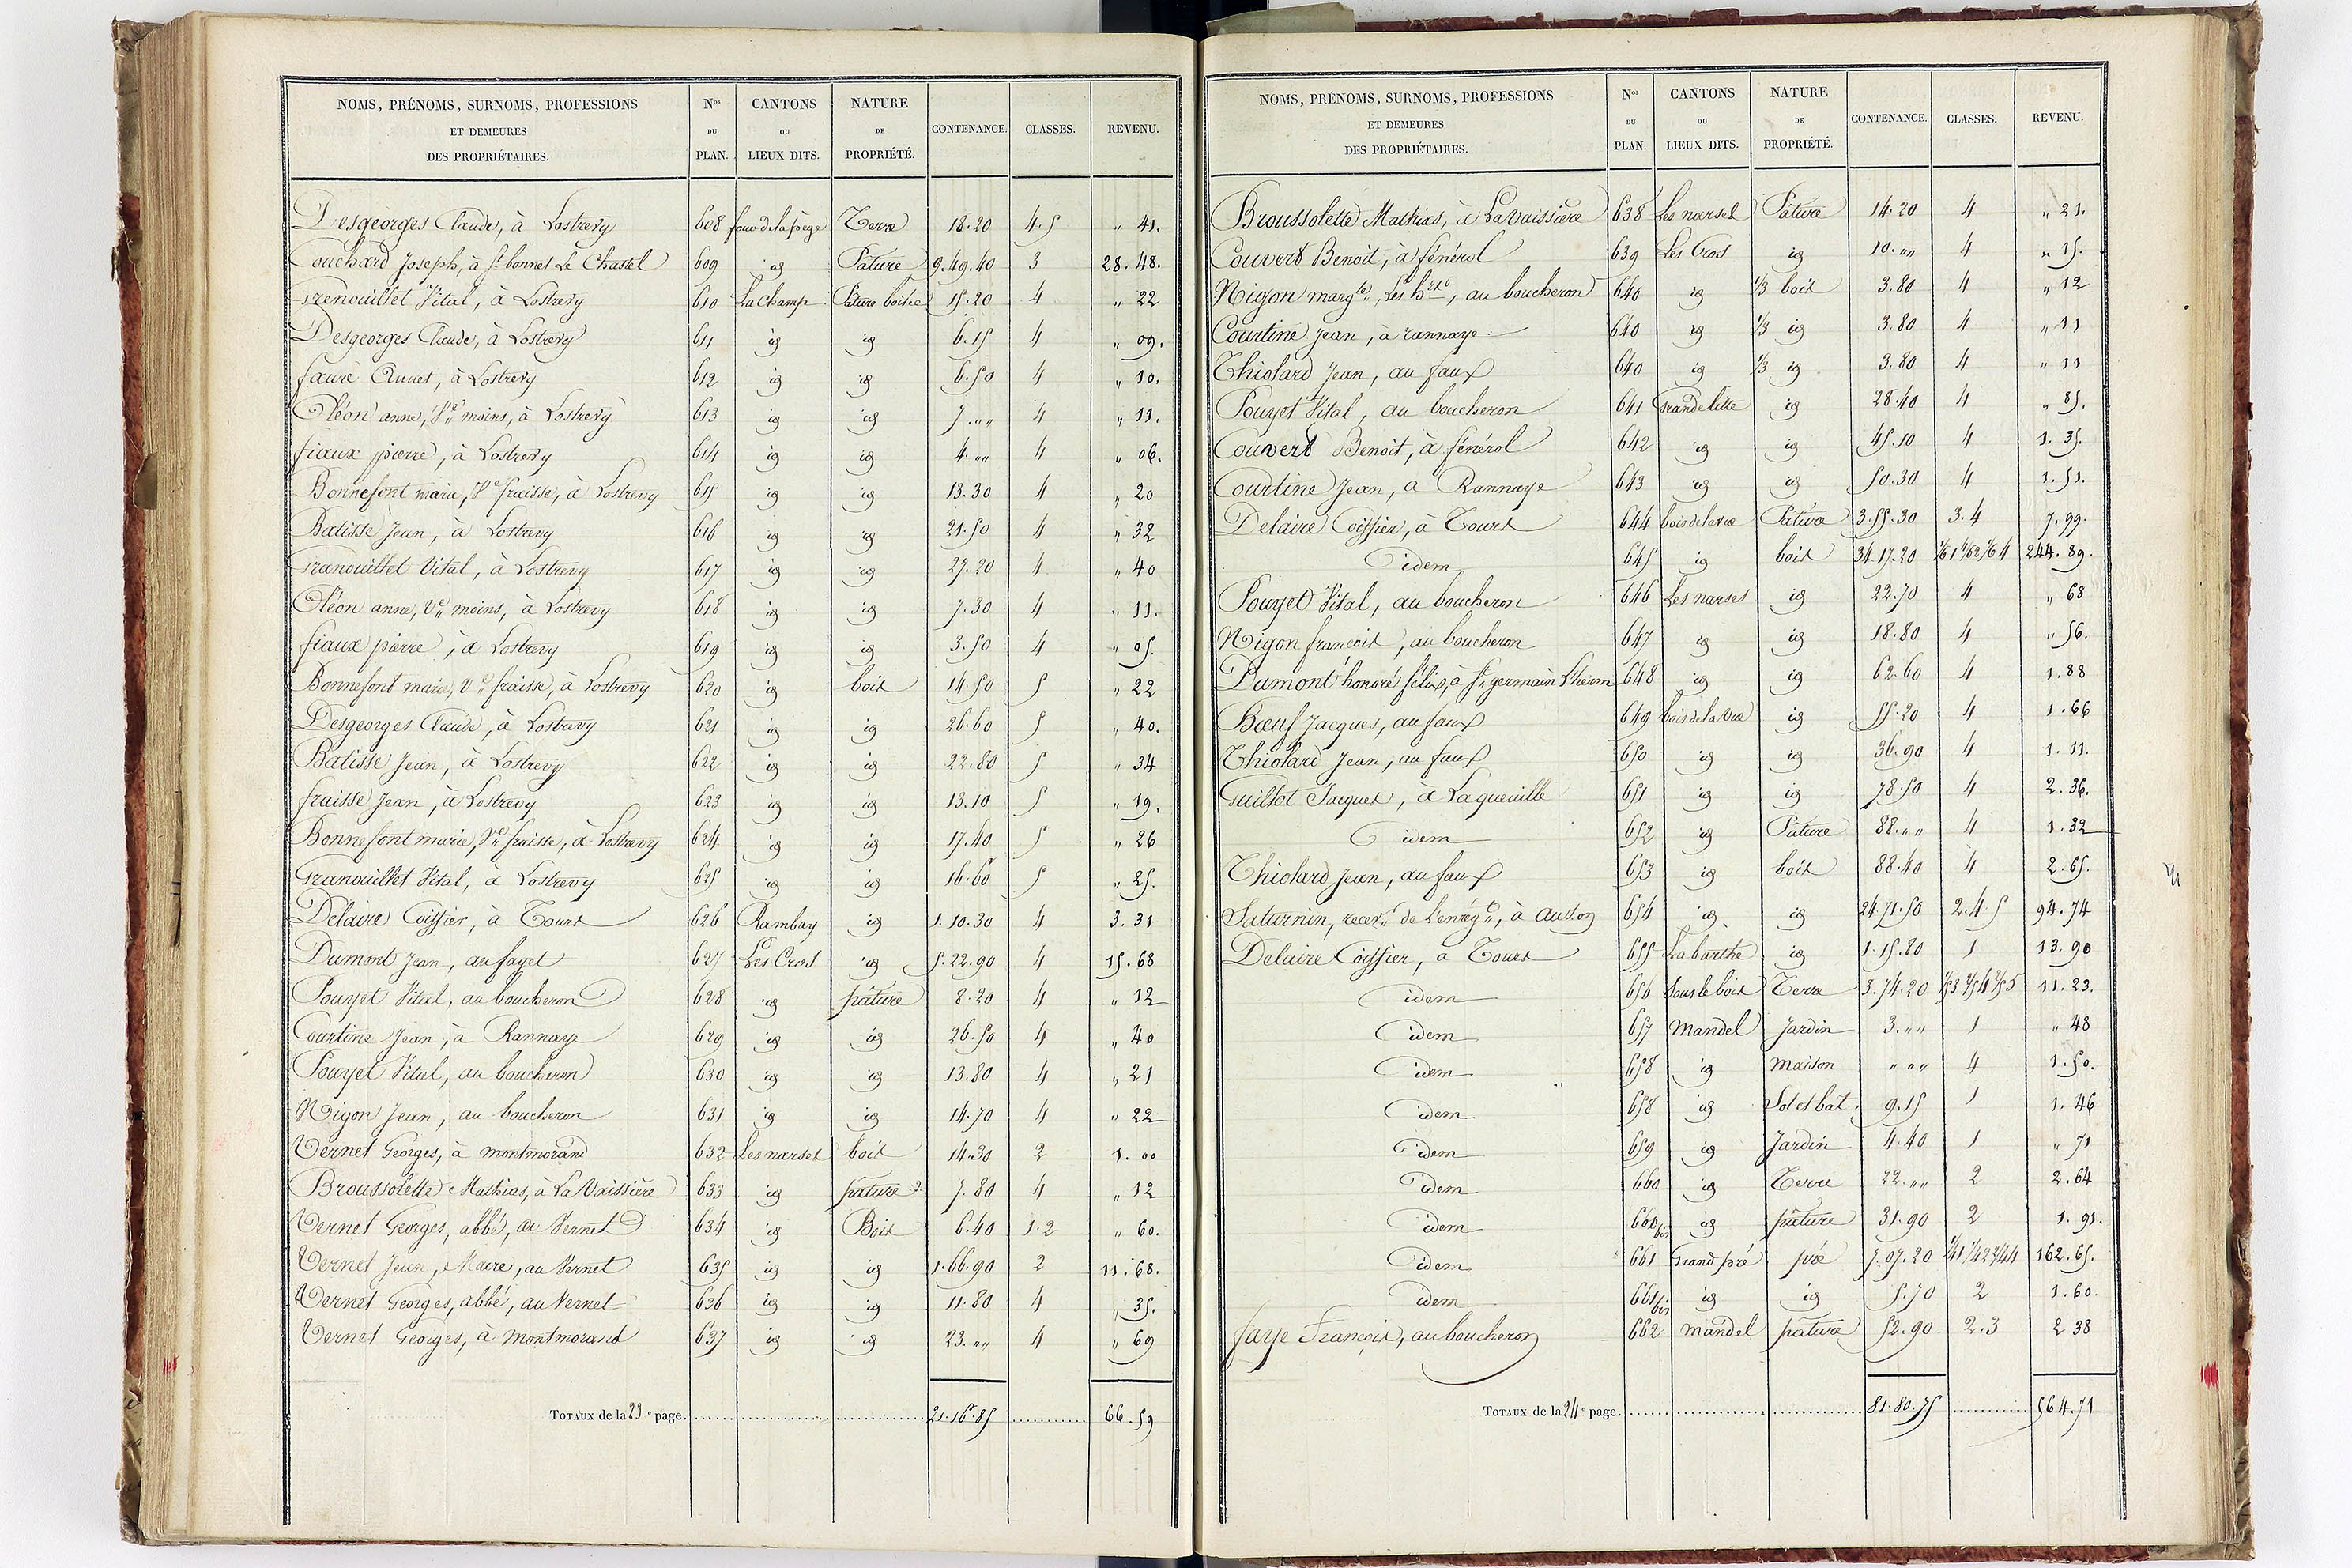 NOMS, PRÉNOMS, SURNOMS, PROFESSIONS ET DEMEURES DES PROPRIÉTAIRES. Nos DU PLAN. CANTONS OU LIEUX DITS. NATURE DE PROPRIÉTÉ. CONTENANCE. CLASSES. REVENU.
Desgeorges Claude, à Lostrevy 608 Terre 18.20 4.5 " 41.
Couchard Joseph, à St bonnet Le Chastel 609 id Pâture 9.49.40 3 28.48.
Grenouillet Vital, à Lostrevy 610 La Champ Pâture boisée 15.20 4 " 22
Desgeorges Claude, à Lostrevy 611 id id 6.15 4 " 09.
faure Annet, à Lostrevy 612 id id 6.50 4 " 10.
Oléon anne, Ve moins, à Lostrevy 613 id id 7."" 4 " 11.
fiaux pierre, à Lostrevy 614 id id 4."" 4 " 06.
Bonnefont marie, Ve fraisse, à Lostrevy 615 id id 13.30 4 " 20
Batisse Jean, à Lostrevy 616 id id 21.50 4 " 32
Granouillet Vital, à Lostrevy 617 id id 27.20 4 " 40
Oléon anne, Ve moins, à Lostrevy 618 id id 7.30 4 " 11.
fiaux pierre, à Lostrevy 619 id id 3.50 4 " 05.
Bonnefont marie, Ve fraisse, à Lostrevy 620 id bois 14.50 5 " 22
Desgeorges Claude, à Lostrevy 621 id id 26.60 5 " 40.
Batisse Jean, à Lostrevy 622 id id 22.80 5 " 34
fraisse Jean, à Lostrevy 623 id id 13.10 5 " 19.
Bonnefont marie, Ve fraisse, à Lostrevy 624 id id 17.40 5 " 26
Granouillet Vital, à Lostrevy 625 id id 16.60 5 " 25.
Delaire Coissier, à Tours 626 Rambay id 1.10.30 4 3.31
Dumont Jean, au fayet 627 Les Cros id 5.22.90 4 15.68
Pouyet Vital, au boucheron 628 id pâture 8.20 4 " 12
Courtine Jean, à Rannaye 629 id id 26.50 4 " 40
Pouyet Vital, au boucheron 630 id id 13.80 4 " 21
Nigon Jean, au boucheron 631 id id 14.70 4 " 22
Vernet Georges, à montmorand 632 Les narses bois 14.30 2 1.00
Broussolette Mathias, à La Vaissière 633 id pature 7.80 4 " 12
Vernet Georges, abbé, au Vernet 634 id Bois 6.40 1.2 " 60.
Vernet Jean, Maire, au Vernet 635 id id 1.66.90 2 11.68.
Vernet Georges, abbé, au Vernet 636 id id 11.80 4 " 35.
Vernet Georges, à Montmorand 637 id id 23."" 4 " 69
TOTAUX de la 23e page. 21.16.85 66.59
NOMS, PRÉNOMS, SURNOMS, PROFESSIONS ET DEMEURES DES PROPRIÉTAIRES. Nos DU PLAN. CANTONS OU LIEUX DITS. NATURE DE PROPRIÉTÉ. CONTENANCE. CLASSES. REVENU.
Broussolette Mathias, à La Vaissière 638 Les narses Pâture 14.20 4 " 21.
Couvert Benoit, à fénérol 639 Les Cros id 10."" 4 " 15.
Nigon margte, Les hers, au boucheron 640 id 1/3 bois 3.80 4 " 12
Courtine Jean, à rannaye 640 id 1/3 id 3.80 4 " 11
Thiolard Jean, au faux 640 id 1/3 id 3.80 4 " 11
Pouyet Vital, au boucheron 641 id 28.40 4 " 85.
Couvert Benoit, à fénérol 642 id id 45.10 4 1.35.
Courtine Jean, a Rannaye 643 id id 50.30 4 1.51.
Delaire Coissier, à Tours 644 Pâture 3.55.30 3.4 7.99.
idem 645 id bois 34.17.20 244.89.
Pouyet Vital, au boucheron 646 Les narses id 22.70 4 " 68
Nigon françois, au boucheron 647 id id 18.80 4 " 56.
Dumont honoré félix, à St germain L'herm 648 id id 62.60 4 1.88
Bœuf Jacques, au faux 649 id 55.20 4 1.66
Thiolard Jean, au faux 650 id id 36.90 4 1.11.
Guillot Jacques, à Laqueuille 651 id id 78.50 4 2.36.
idem 652 id Pature 88."" 4 1.32
Thiolard Jean, au faux 653 id bois 88.40 4 2.65.
Saturnin, recevr de l'enregt, à Auzon 654 id id 24.71.50 2.4.5 94.74
Delaire Coissier, à Tours 655 La barthe id 1.15.80 1 13.90
idem 656 Sous le bois Terre 3.74.20 11.23.
idem 657 Mandel Jardin 3."" 1 " 48
idem 658 id maison """ 4 1.50.
idem 658 id Sol et bat. 9.15 1 1.46
idem 659 id Jardin 4.40 1 " 71
idem 660 id Terre 22."" 2 2.64
idem 660 bis id pâture 31.90 2 1.91.
idem 661 Grand pré pré 7.07.20 162.65.
idem 661 bis id id 5.70 2 1.60.
faye François, au boucheron 662 mandel pature 52.90 2.3 2 38
TOTAUX de la 24e page. 81.80.75 564.71